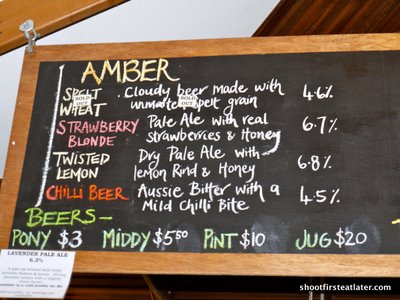 AMBER
SPELT WHEAT SOLD OUT · Cloudy beer made with unmalted spelt grain SOLD OUT 4.6%
STRAWBERRY BLONDE Pale Ale with real strawberries & Honey 6.7%
TWISTED LEMON Dry Pale Ale with lemon Rind & Honey 6.8%
CHILLI BEER Aussie Bitter with a Mild Chilli Bite 4.5%
BEERS—
PONY $3 MIDDY $5.50 PINT $10 JUG $20
LAVENDER PALE ALE
6.3%
shootfirsteatlater.com